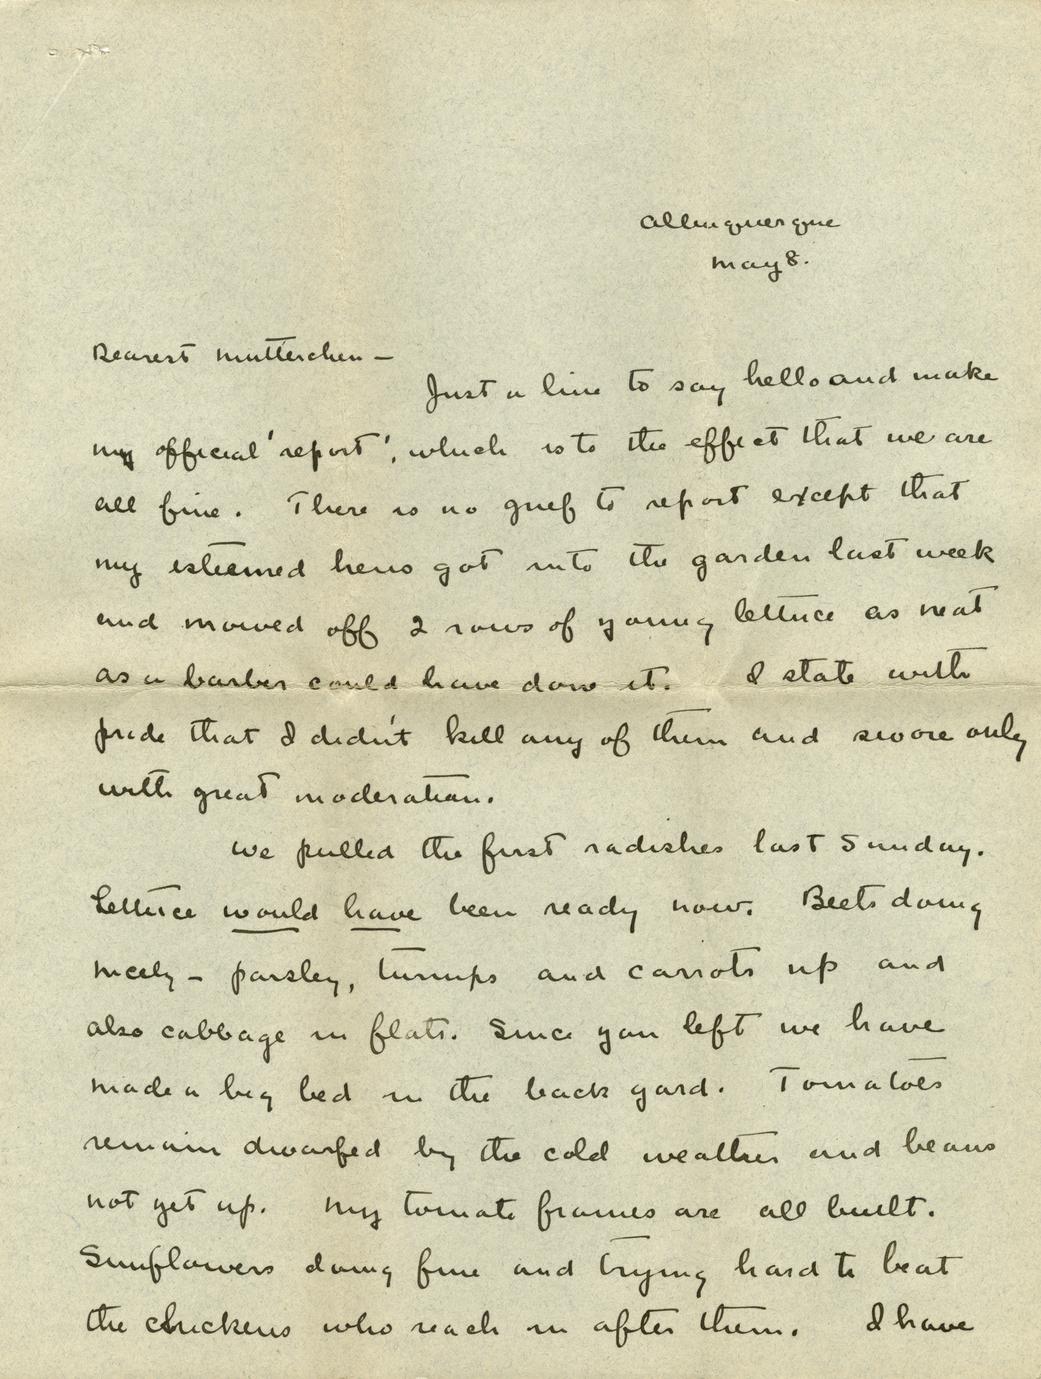 Albuquerque
May 8.
Dearest Mutterchen —
Just a line to say hello and make
my official 'report', which is to the effect that we are
all fine. There is no grief to report except that
my esteemed hens got into the garden last week
and mowed off 2 rows of young lettuce as neat
as a barber could have done it. I state with
pride that I didn't kill any of them and swore only
with great moderation.
We pulled the first radishes last Sunday.
Lettuce would have been ready now. Beets doing
nicely — parsley, turnips and carrots up and
also cabbage in flats. Since you left we have
made a big bed in the back yard. Tomatoes
remain dwarfed by the cold weather and beans
not yet up. My tomato frames are all built.
Sunflowers doing fine and trying hard to beat
the chickens who reach in after them. I have